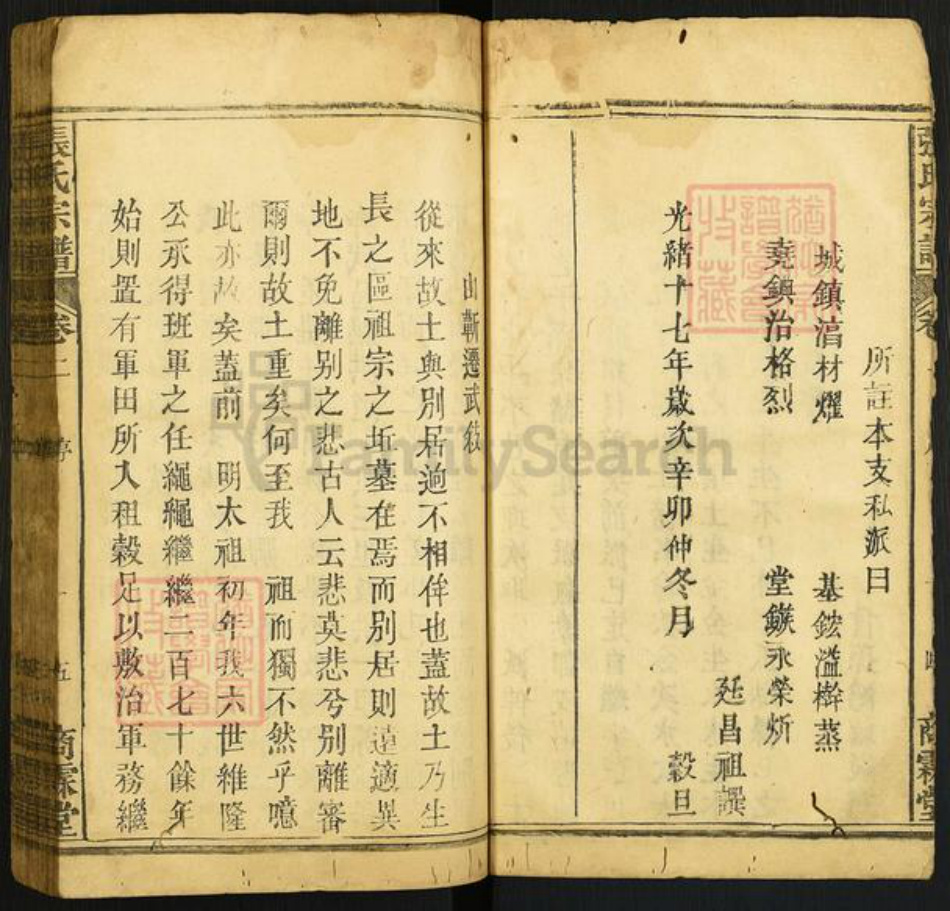 所註本支私派曰
城鎮濇材燿　基鋐溢檊蒸
堯鎮治格烈　堂鏃永榮炘
延昌祖譔
光緒十七年歲次辛卯仲冬月　穀旦
山蘄遷武敍
從來故土與別居逈不相侔也蓋故土乃生
長之區祖宗之坵墓在焉而別居則遠適異
地不免離別之悲古人云悲莫悲兮別離審
爾則故土重矣何至我　祖而獨不然乎噫
此亦故矣蓋前　明太祖初年我六世維隆
公承得班軍之任繩繩繼繼二百七十餘年
始則置有軍田所入租穀足以敷治軍務繼
張氏宗譜
卷
五
商霖堂
FamilySearch